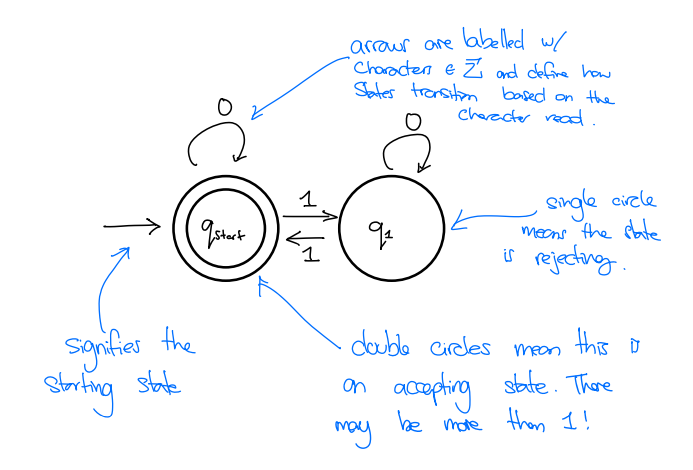 arrows are labelled w/
characters ∈ Σ and define how
states transition based on the
character read.
0
0
1
q_start
q_1
1
single circle
means the state
is rejecting.
signifies the
starting state
double circles mean this is
an accepting state. There
may be more than 1!